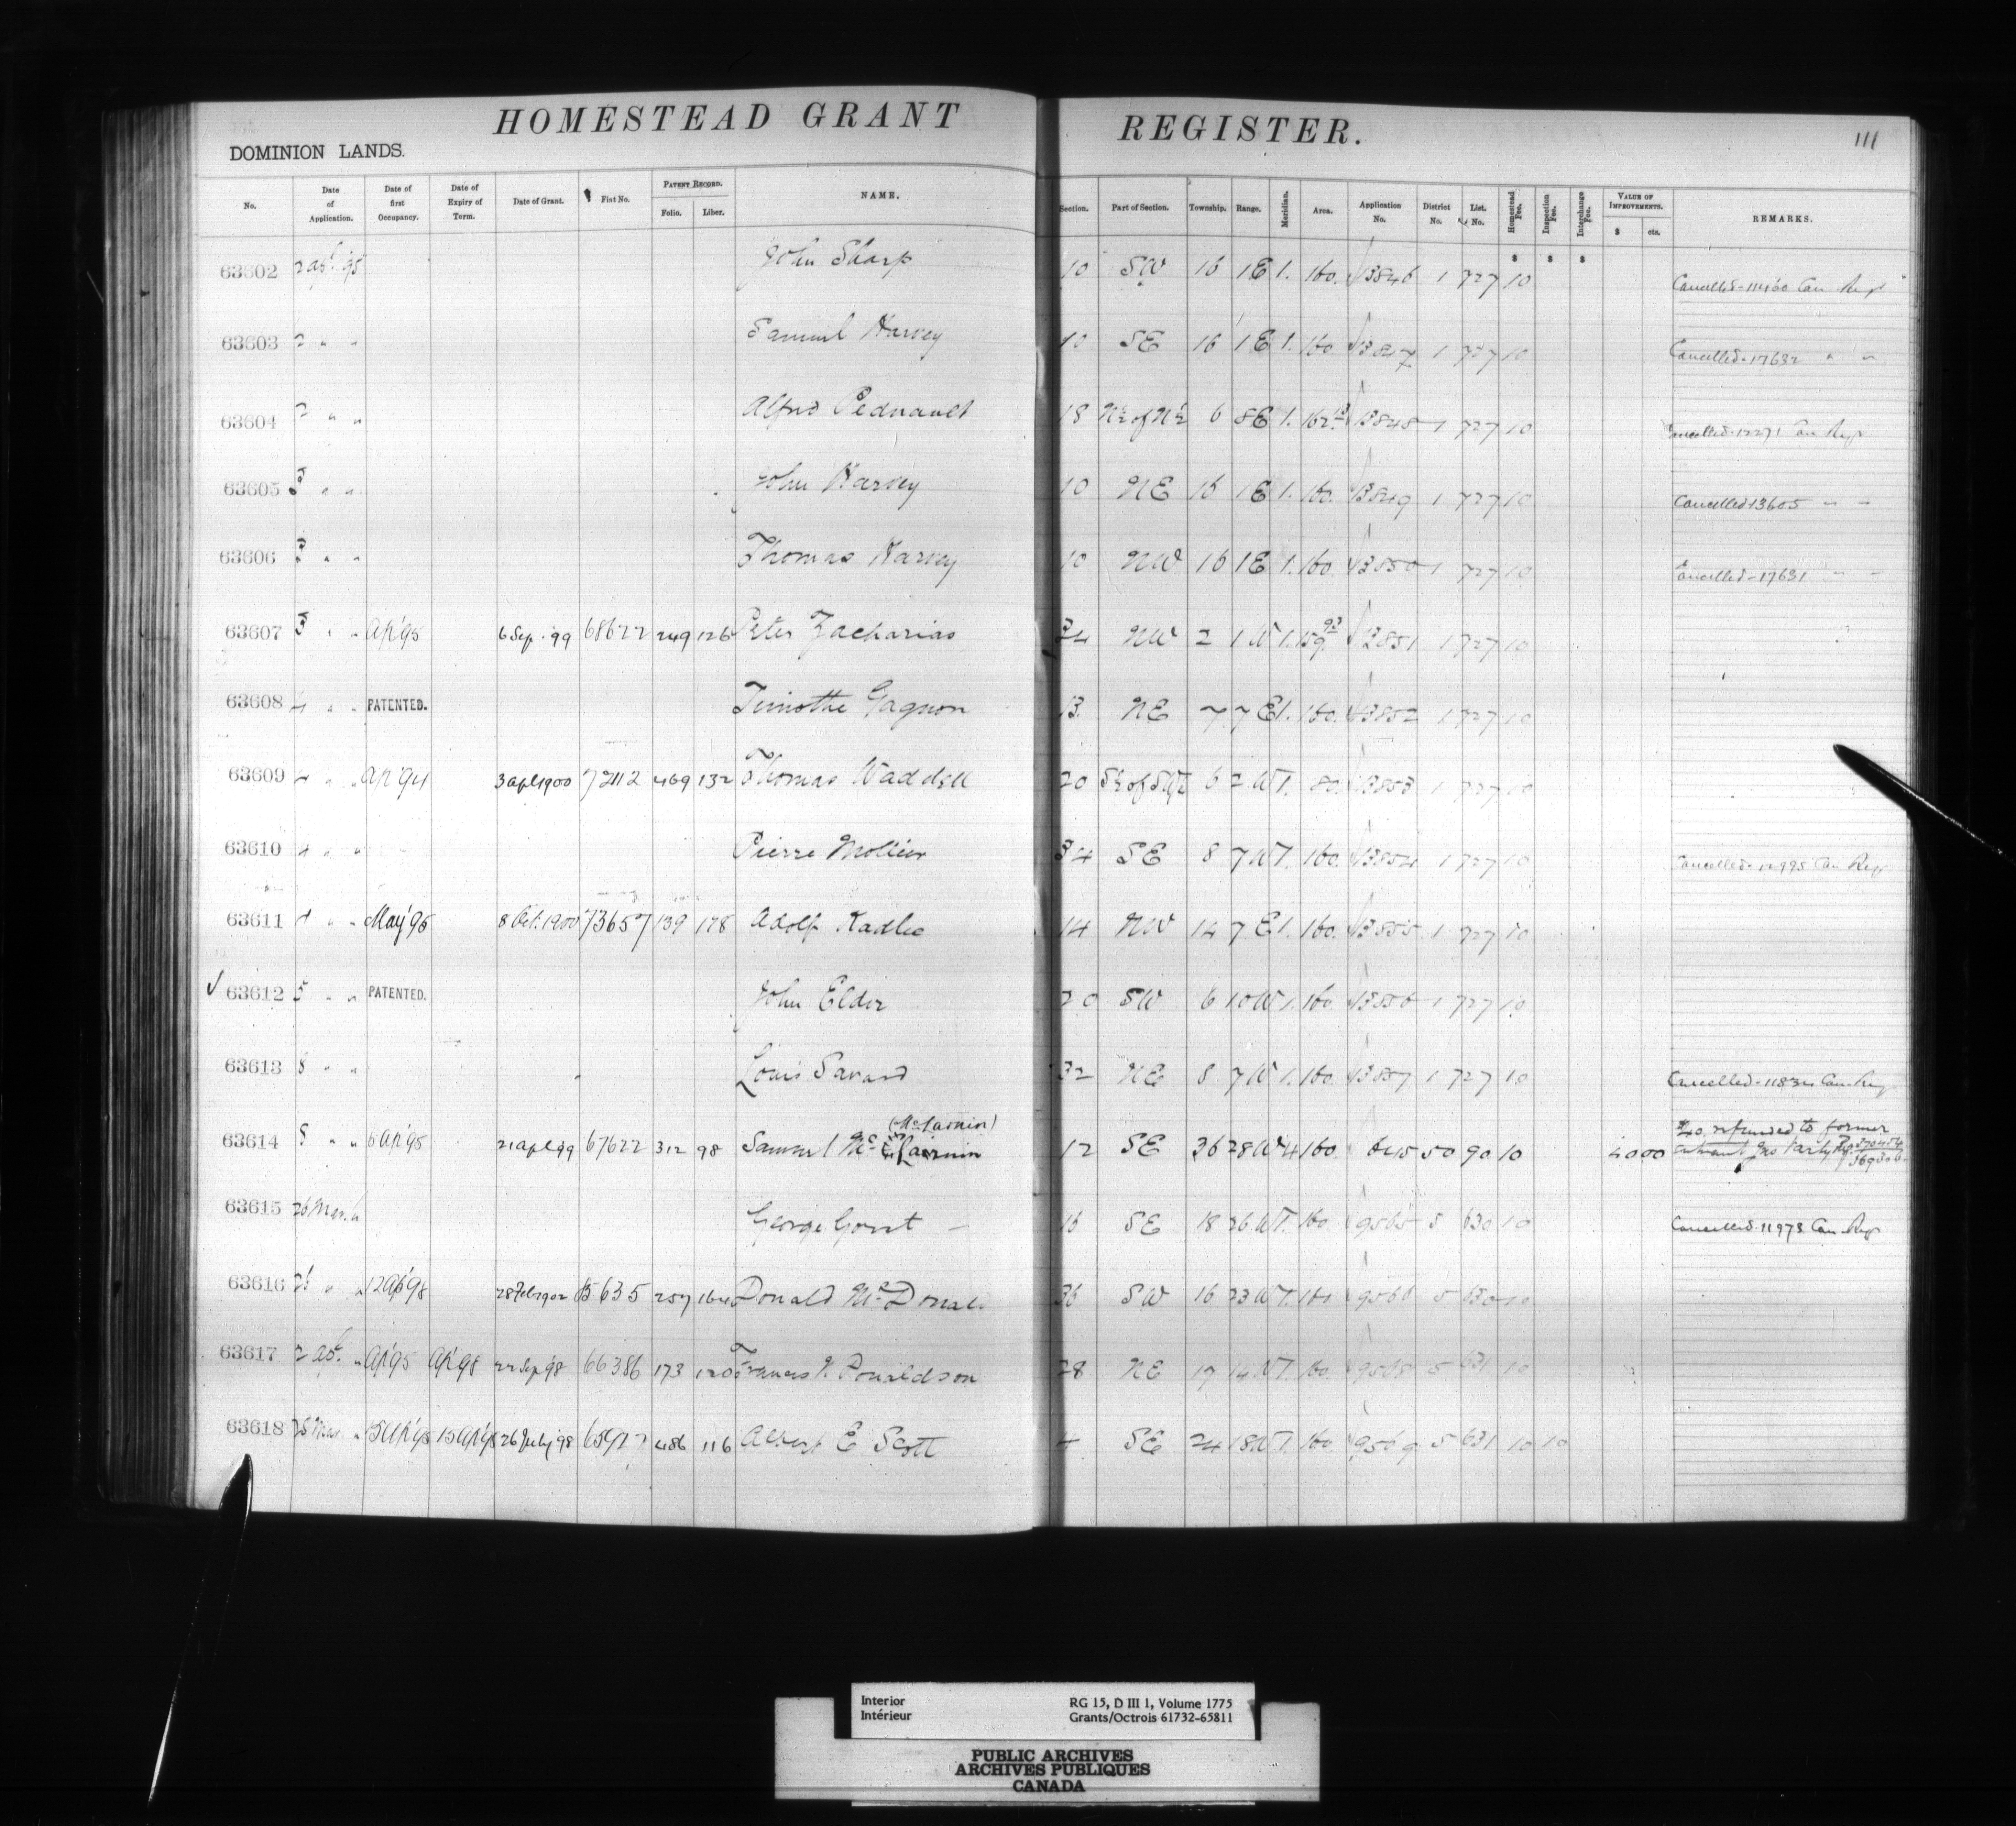 HOMESTEAD GRANT REGISTER.
111
DOMINION LANDS.
No. Date of Application. Date of first Occupancy. Date of Expiry of Term. Date of Grant. Fiat No. PATENT RECORD. Folio. Liber. NAME. Section. Part of Section. Township. Range. Meridian. Area. Application No. District No. List. No. Homestead Fee. Inspection Fee. Interchange Fee. VALUE OF IMPROVEMENTS. $ cts. REMARKS.
$ $ $
63602 2 apl. 95 John Sharp 10 SW 16 1E 1. 160. 13846 1 727 10 Cancelled - 11460 Can Regr
63603 2 " " Samuel Harvey 10 SE 16 1E 1. 160. 13847 1 727 10 Cancelled - 17632 " "
63604 2 " " Alfred Pednault 18 N½ of N½ 6 8E 1. 162 13848 1 727 10 Cancelled - 12271 Can Regr
63605 3 " " John Harvey 10 NE 16 1E 1. 160. 13849 1 727 10 Cancelled 13605 " "
63606 3 " " Thomas Harvey 10 NW 16 1E 1. 160. 13850 1 727 10 Cancelled - 17631 " "
63607 3 " " Ap'95 6 Sep. '99 68622 249 126 Peter Zacharias 34 NW 2 1W 1. 159.93 13851 1 727 10
63608 4 " " PATENTED. Timothe Gagnon 13. NE 7 7E 1. 160. 13852 1 727 10
63609 4 " " Ap'94 3 apl 1900 72112 469 132 Thomas Waddell 20 S½ of SW¼ 6 2W 1. 80. 13853 1 727 10
63610 4 " " Pierre Mollier 34 SE 8 7W 1. 160. 13854 1 727 10 Cancelled - 12995 Can Regr
63611 4 " " May '95 8 Oct. 1900 73657 139 178 Adolf Kadlec 14 NW 14 7E 1. 160. 13855 1 727 10
✓ 63612 5 " " PATENTED. John Elder 20 SW 6 10W 1. 160. 13856 1 727 10
63613 8 " " Louis Savard 32 NE 8 7W 1. 160. 13857 1 727 10 Cancelled - 11834 Can Regr
(McLarnin)
63614 8 " " 6 Ap'95 21 apl 99 67622 312 98 Samuel Mc 12 SE 36 28W 4 160. 6415 50 90 10 40 00 $40. refunded to former entrant
63615 26 Mar. " George Gorst 16 SE 18 26W 1. 160 9565 5 630 10 Cancelled - 11973 Can Regr
63616 " " 12 Ap'98 28 Feb 1902 5635 257 164 Donald McDonald 36 SW 16 23W 1. 160 9566 5 630 10
63617 2 apl. " Ap'95 Ap'98 22 Sep '98 66386 173 120 Francis Donaldson 28 NE 17 14W 1. 160. 9568 5 631 10
63618 25 Mar. " 15 Ap'95 15 Ap'98 26 July '98 65927 486 116 Albert E Scott 4 SE 24 18W 1. 160. 9569 5 631 10 10
Interior
Intérieur
RG 15, D III 1, Volume 1775
Grants/Octrois 61732-65811
PUBLIC ARCHIVES
ARCHIVES PUBLIQUES
CANADA